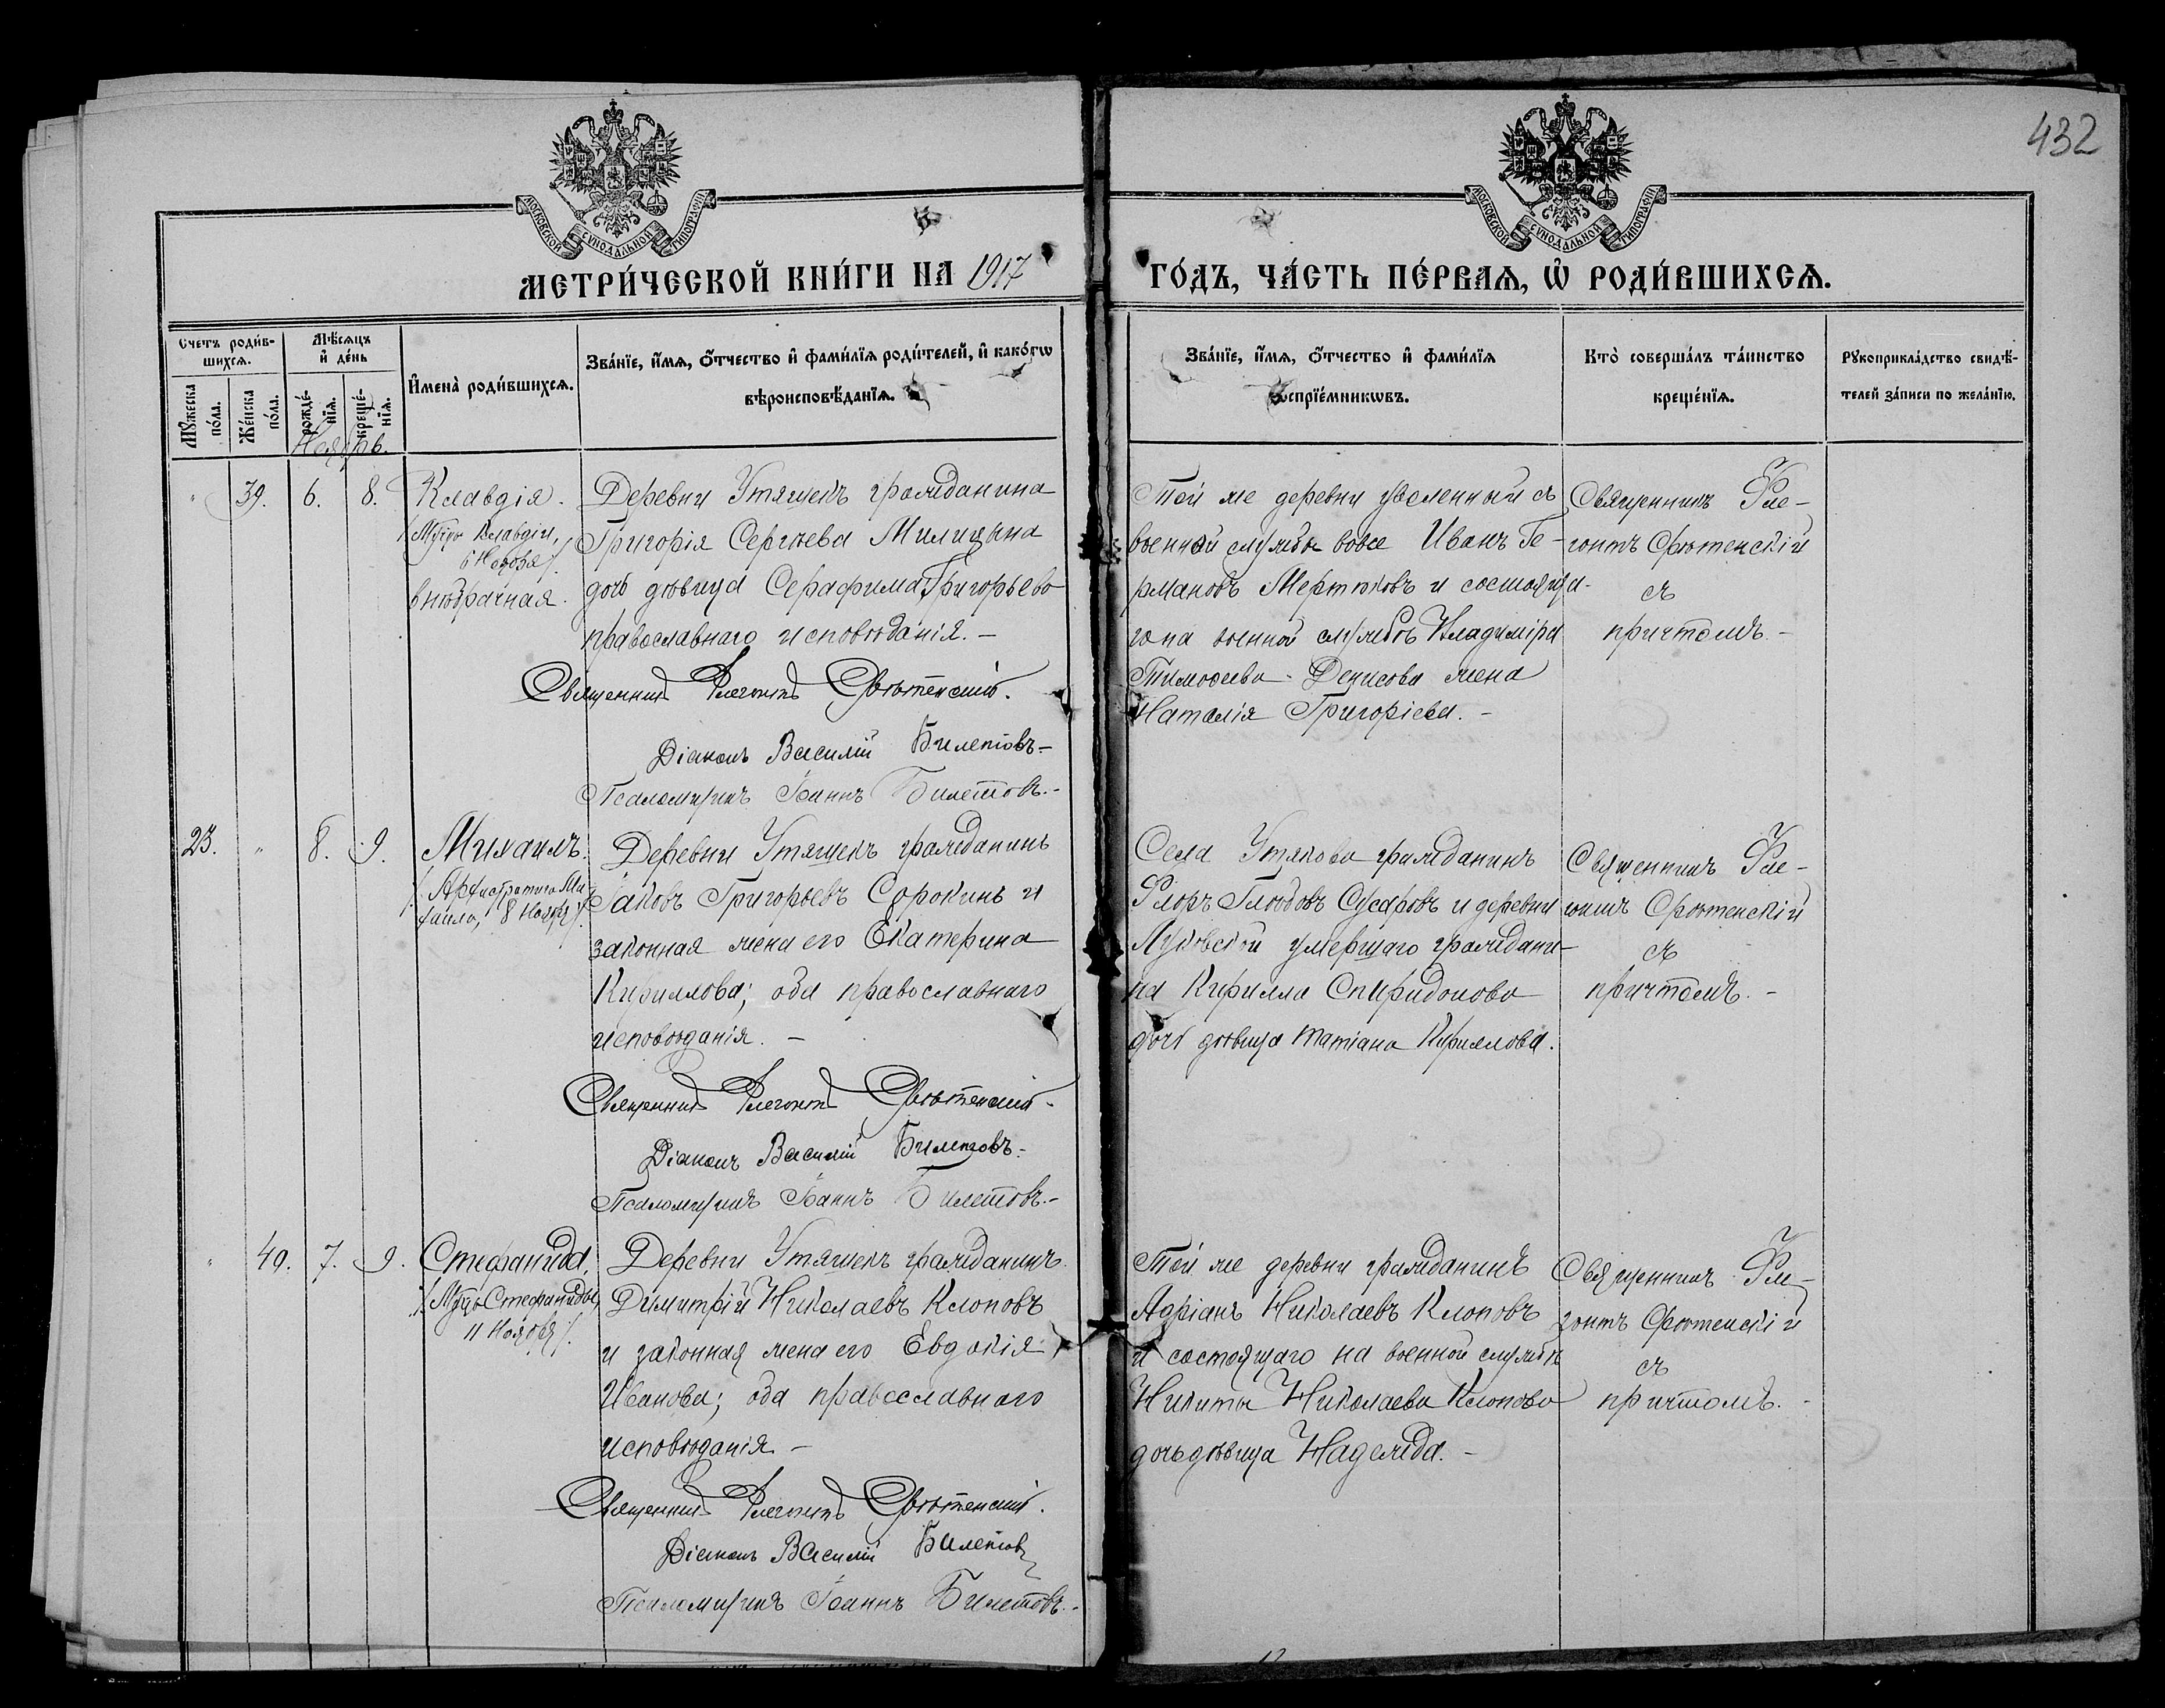 432
МОСКОВСКОЙ СѴНОДАЛЬНОЙ ТИПОГРАФІИ
МОСКОВСКОЙ СѴНОДАЛЬНОЙ ТИПОГРАФІИ
МЕТРИ́ЧЕСКОЙ КНИ́ГИ НА 1917 ГО́ДЪ, ЧА́СТЬ ПЕ́РВАЯ, Ѡ҆ РОДИ́ВШИХСЯ.
Счетъ роди́в-
шихся.
Мꙋ́жеска
по́ла.
Же́нска
по́ла.
Мѣ́сяцъ
и҆ де́нь
рожде́-
нїя.
креще́-
нїя.
И҆мена̀ роди́вшихся.
Зва́нїе, и҆́мя, ѻ҆́тчество и҆ фами́лїя роди́телей, и҆ како́гѡ
вѣроисповѣ́данїя.
Зва́нїе, и҆́мя, ѻ҆́тчество и҆ фами́лїя
воспрїе́мникѡвъ.
Кто̀ соверша́лъ та́инство
креще́нїя.
Рꙋкоприкла́дство свидѣ́-
телей за́писи по жела́нїю.
Ноябрь.
" 39. 6. 8.
Клавдія.
/: Муч. Клавдіи,
6 Ноября :/
внѣбрачная.
Деревни Утяшекъ гражданина
Григорія Сергѣева Милицына
дочь дѣвица Серафима Григорьева
православнаго исповѣданія. –
Священникъ Флегонтъ Срѣтенскій.
Діаконъ Василій Билетовъ –
Псаломщикъ Іоаннъ Билетовъ. –
Той же деревни уволенный съ
военной службы вовсе Иванъ Ге-
рмановъ Мертюковъ и состояща-
го на военной службѣ Владиміра
Тимоѳеева Денисова жена
Наталія Григоріева. –
Священникъ Фле-
гонтъ Срѣтенскій
съ
причтомъ. –
23. " 8. 9.
Михаилъ.
/: Архистратига Ми-
хаила, 8 Ноября :/
Деревни Утяшекъ гражданинъ
Іаковъ Григорьевъ Сорокинъ и
законная жена его Екатерина
Кириллова; оба православнаго
исповѣданія. –
Священникъ Флегонтъ Срѣтенскій.
Діаконъ Василій Билетовъ –
Псаломщикъ Іоаннъ Билетовъ. –
Села Утякова гражданинъ
Флоръ Глѣбовъ Сусаровъ и деревни
Луковской умершаго граждани-
на Кирилла Спиридонова
дочь дѣвица Татіана Кириллова.
Священникъ Фле-
гонтъ Срѣтенскій
съ
причтомъ. –
" 40. 7. 9.
Стефанида.
/: Муч. Стефаниды,
11 Ноября :/
Деревни Утяшекъ гражданинъ
Димитрій Николаевъ Клоповъ
и законная жена его Евдокія
Иванова; оба православнаго
исповѣданія. –
Священникъ Флегонтъ Срѣтенскій.
Діаконъ Василій Билетовъ
Псаломщикъ Іоаннъ Билетовъ. –
Той же деревни гражданинъ
Адріанъ Николаевъ Клоповъ
и состоящаго на военной службѣ
Никиты Николаева Клопова
дочь дѣвица Надежда. –
Священникъ Фле-
гонтъ Срѣтенскій
съ
причтомъ. –